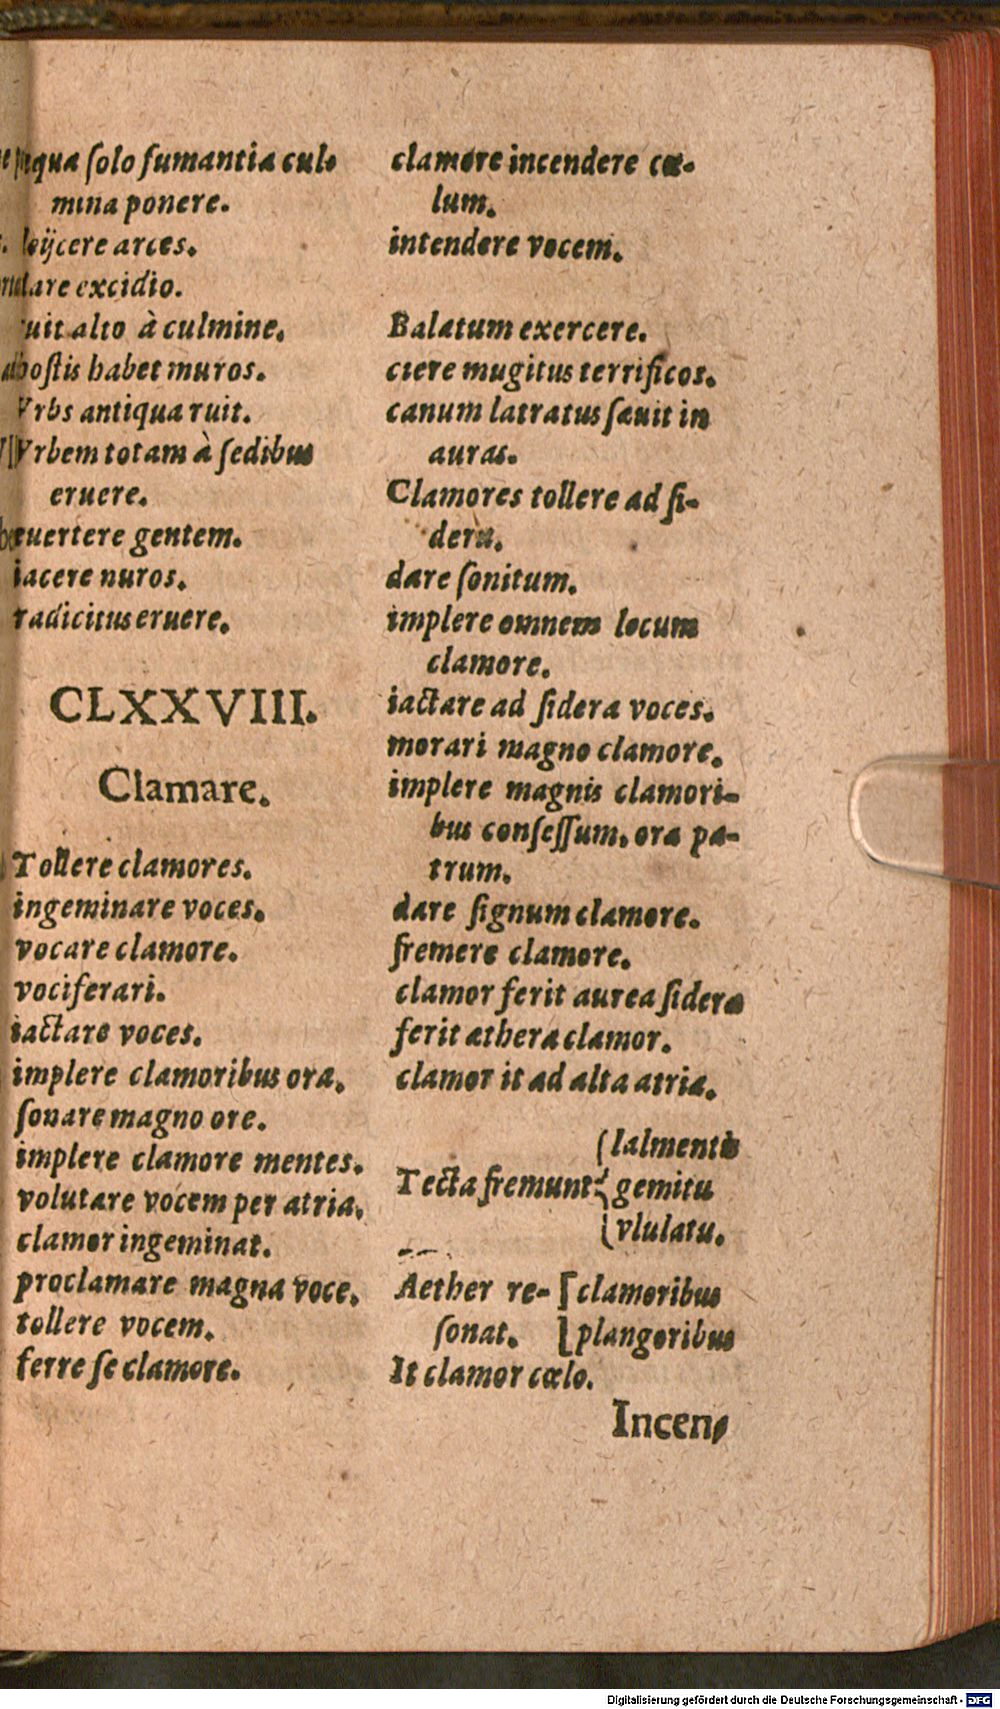 æqua ſolo fumantia cul-
mina ponere.
deijcere arces.
dare excidio.
ruit alto à culmine.
hoſtis habet muros.
Vrbs antiqua ruit.
Vrbem totam à ſedibus
eruere.
euertere gentem.
iacere nuros.
radicitus eruere.
CLXXVIII.
Clamare.
Tollere clamores.
ingeminare voces.
vocare clamore.
vociferari.
iactare voces.
implere clamoribus ora.
ſonare magno ore.
implere clamore mentes.
volutare vocem per atria.
clamor ingeminat.
proclamare magna voce.
tollere vocem.
ferre ſe clamore.
clamore incendere cœ-
lum.
intendere vocem.
Balatum exercere.
ciere mugitus terrificos.
canum latratus ſæuit in
auras.
Clamores tollere ad ſi-
dera.
dare ſonitum.
implere omnem locum
clamore.
iactare ad ſidera voces.
morari magno clamore.
implere magnis clamori-
bus conſeſſum, ora pa-
trum.
dare ſignum clamore.
fremere clamore.
clamor ferit aurea ſidera
ferit æthera clamor.
clamor it ad alta atria.
lalmentis
Tecta fremunt gemitu
vlulatu.
Aether re- clamoribus
ſonat. plangoribus
It clamor cœlo.
Incen-
Digitalisierung gefördert durch die Deutsche Forschungsgemeinschaft - DFG